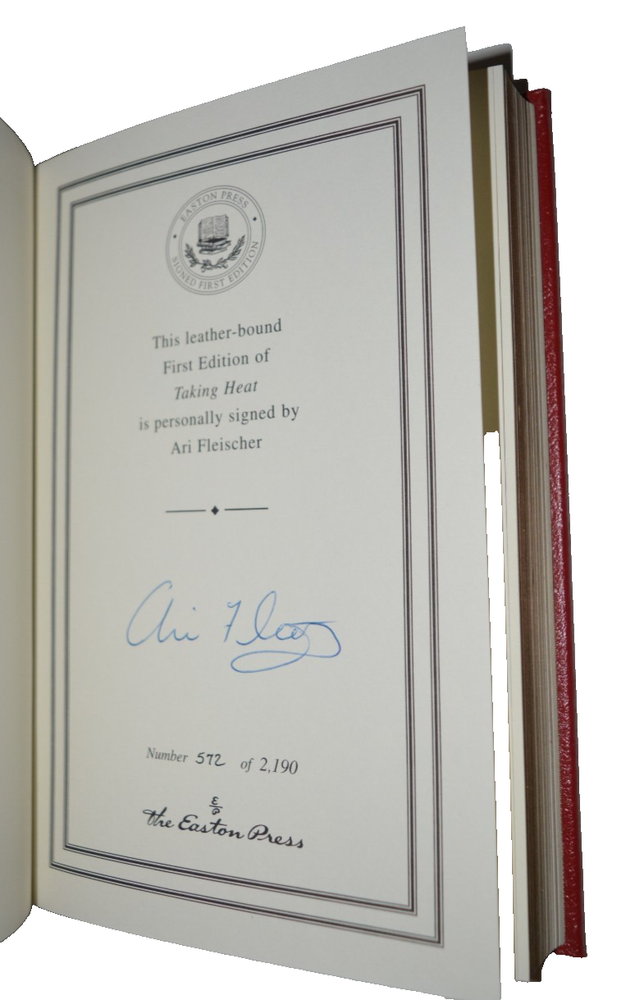 EASTON PRESS
SIGNED FIRST EDITION
This leather-bound
First Edition of
Taking Heat
is personally signed by
Ari Fleischer
Ari Fleischer
Number 572 of 2,190
E/P
the Easton Press